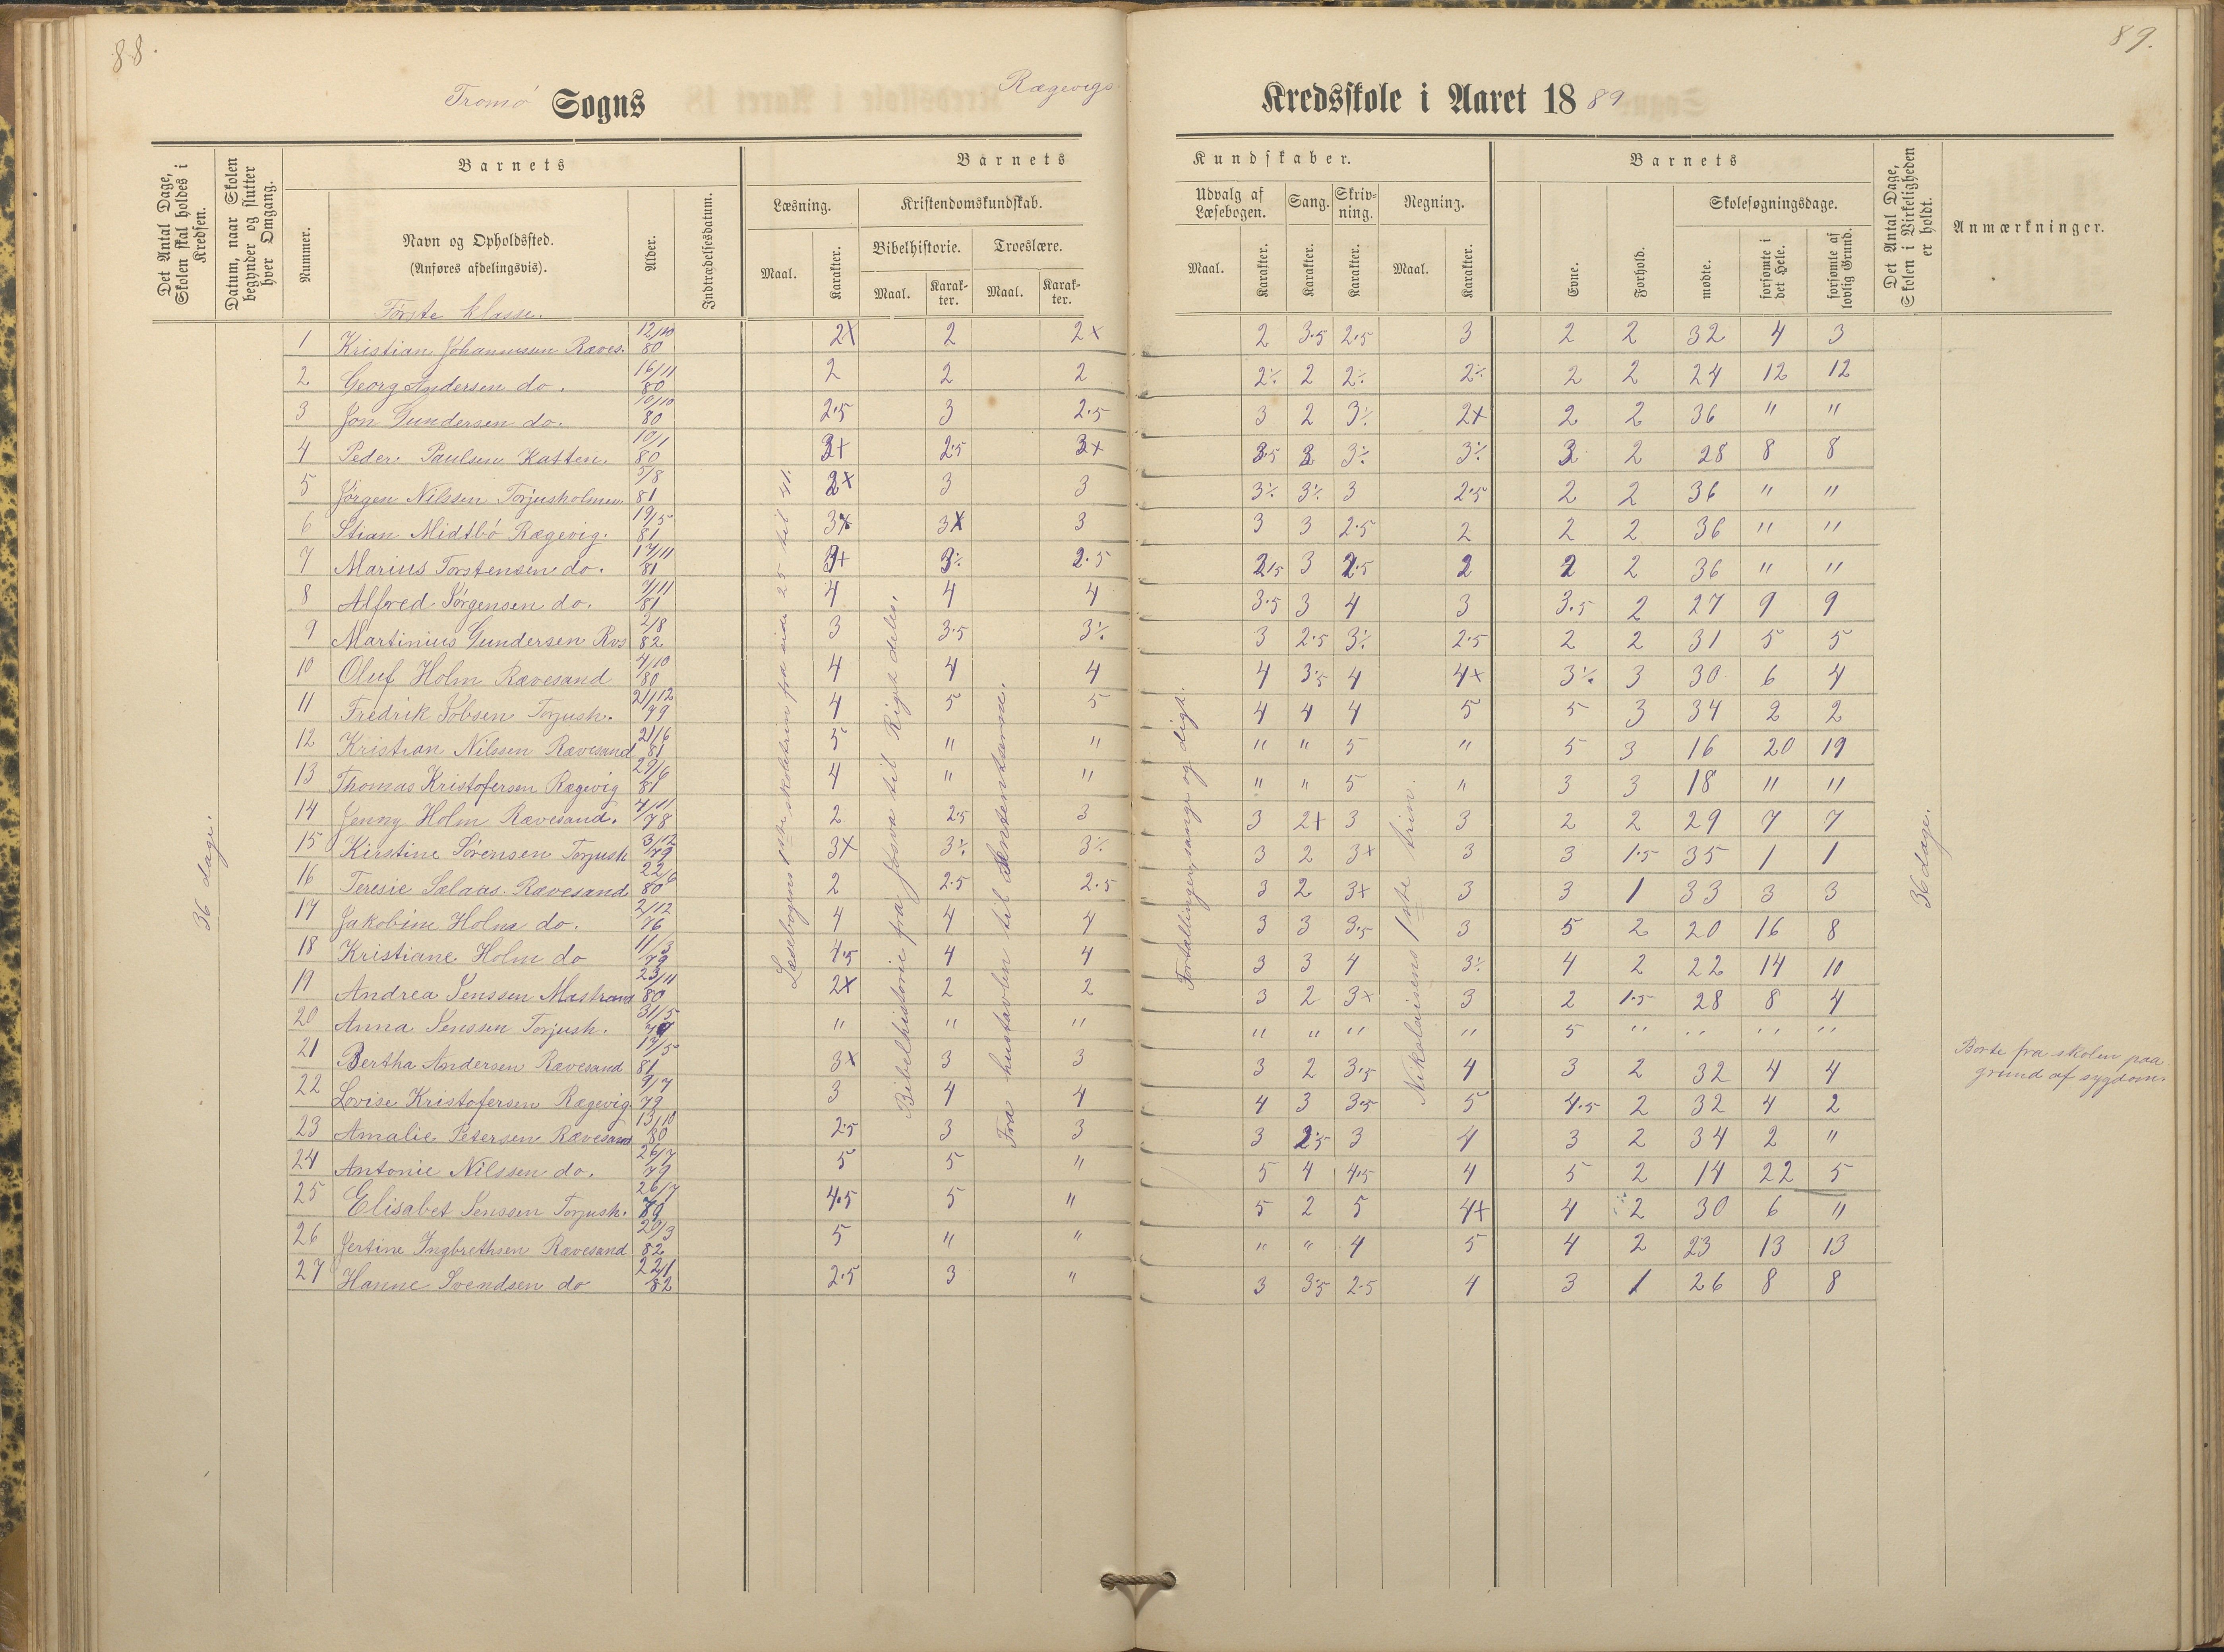 88.
89.
Tromø Sogns
Rægevigs Kredsskole i Aaret 1889
Det Antal Dage, Skolen skal holdes i Kredsen.
Datum, naar Skolen begynder og slutter hver Omgang.
Barnets
Nummer.
Navn og Opholdssted.
(Anføres afdelingsvis).
Alder.
Indtrædelsesdatum.
Barnets Kundskaber.
Læsning.
Maal.
Karakter.
Kristendomskundskab.
Bibelhistorie.
Maal.
Karak-ter.
Troeslære.
Maal.
Karak-ter.
Udvalg af Læsebogen.
Maal.
Karakter.
Sang.
Karakter.
Skriv-ning.
Karakter.
Regning.
Maal.
Karakter.
Barnets
Evne.
Forhold.
Skolesøgningsdage.
mødte.
forsømte i det Hele.
forsømte af lovlig Grund.
Det Antal Dage, Skolen i Virkeligheden er holdt.
Anmærkninger.
Første klasse.
1 Kristian Johannessen Ræves. 12/10 80 2+ 2 2+ 2 3.5 2.5 3 2 2 32 4 3
2 Georg Andersen do. 16/11 80 2 2 2 2÷ 2 2÷ 2÷ 2 2 24 12 12
3 Jon Gundersen do. 10/10 80 2.5 3 2.5 3 2 3÷ 2+ 2 2 36 " "
4 Peder Paulsen Katten. 10/1 80 3+ 2.5 3+ 3.5 3 3÷ 3÷ 3 2 28 8 8
5 Jörgen Nilssen Torjusholmen 5/8 81 2+ 3 3 3÷ 3÷ 3 2.5 2 2 36 " "
6 Stian Midtbö Rægevig. 19/5 81 3+ 3+ 3 3 3 2.5 2 2 2 36 " "
7 Marius Torstensen do. 17/11 81 3+ 3÷ 2.5 2.5 3 2.5 2 2 2 36 " "
8 Alfred Jörgensen do. 7/11 81 4 4 4 3.5 3 4 3 3.5 2 27 9 9
9 Martinius Gundersen Rvs 2/8 82 3 3.5 3÷ 3 2.5 3÷ 2.5 2 2 31 5 5
10 Oluf Holm Rævesand 4/10 80 4 4 4 4 3.5 4 4+ 3÷ 3 30 6 4
11 Fredrik Jobsen Torjush. 21/12 79 4 5 5 4 4 4 5 5 3 34 2 2
12 Kristian Nilssen Rævesand 21/6 81 5 " " " " 5 " 5 3 16 20 19
13 Thomas Kristofersen Rægevig 29/6 81 4 " " " " 5 " 3 3 18 " "
14 Jenny Holm Rævesand. 4/11 78 2 2.5 3 3 2+ 3 3 2 2 29 7 7
15 Kirstine Sörensen Torjush 3/12 79 3+ 3÷ 3÷ 3 2 3+ 3 3 1.5 35 1 1
16 Teresie Salaas. Rævesand 22/6 80 2 2.5 2.5 3 2 3+ 3 3 1 33 3 3
17 Jakobine Holm do. 2/12 76 4 4 4 3 3 3.5 3 5 2 20 16 8
18 Kristiane Holm do 11/3 79 4.5 4 4 3 3 4 3÷ 4 2 22 14 10
19 Andrea Jenssen Mastrand 23/11 80 2+ 2 2 3 2 3+ 3 2 1.5 28 8 4
20 Anna Jenssen Torjush. 31/5 " " " " " " " 5 " " " "
21 Bertha Andersen Rævesand 17/5 81 3+ 3 3 3 2 3.5 4 3 2 32 4 4
22 Lovise Kristofersen Rægevig 9/7 79 3 4 4 4 3 3.5 5 4.5 2 32 4 2
23 Amalie Petersen Rævesand 13/10 80 2.5 3 3 3 2.5 3 4 3 2 34 2 "
24 Antonie Nilssen do. 26/7 79 5 5 " 5 4 4.5 4 5 2 14 22 5
25 Elisabet Jenssen Torjush. 26/7 79 4.5 5 " 5 2 5 4+ 4 2 30 6 "
26 Jertine Ingbrethsen Rævesand 29/3 82 5 " " " " 4 5 4 2 23 13 13
27 Hanne Svendsen do 22/1 82 2.5 3 " 3 3.5 2.5 4 3 1 26 8 8
36 dage.
Læsebogens 1ste skoletrin fra side 25 til 41.
Bibelhistorie fra Josva til Rigets deling.
Fra hustavlen til Sententserne.
Fortællinger, sange og digt.
Nikolaisens 1ste trin.
36 dage.
Borte fra skolen paa
grund af sygdom.